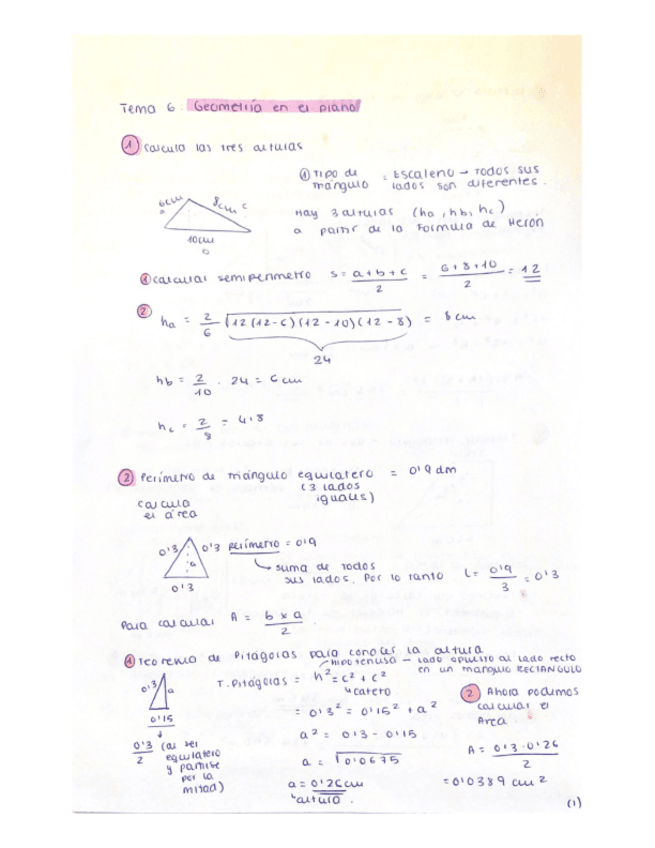 Tema 6: Geometría en el plano
① Calcula las tres alturas
① Tipo de triángulo = Escaleno → Todos sus lados son diferentes.
6cm
8cm c
10cm
Hay 3 alturas (ha, hb, hc)
a partir de la Formula de Herón
① Calcular semiperimetro S = a+b+c / 2 = 6+8+10 / 2 = 12
② ha = 2/6 √12(12-6)(12-10)(12-8) = 8 cm
24
hb = 2/10 · 24 = 6 cm
hc = 2/8 = 4'8
② Perímetro de triángulo equilatero = 0'9 dm
(3 lados iguals)
calcula el área
0'3
0'3
a
0'3
perímetro = 0'9
suma de todos sus lados. Por lo tanto l = 0'9/3 = 0'3
Para calcular A = b x a / 2
① Teorema de Pitágoras para conocer la altura
hipotenusa – lado opuesto al lado recto en un triangulo RECTANGULO
T. Pitágoras = h² = c² + c²
catero
0'3
a
0'15
0'3/2 (al ser equilatero y partirse por la mitad)
= 0'3² = 0'15² + a²
a² = 0'3 - 0'15
a = √0'0675
a = 0'26cm
altura.
② Ahora podemos calcular el Area
A = 0'3·0'26 / 2
= 0'0389 cm²
(1)